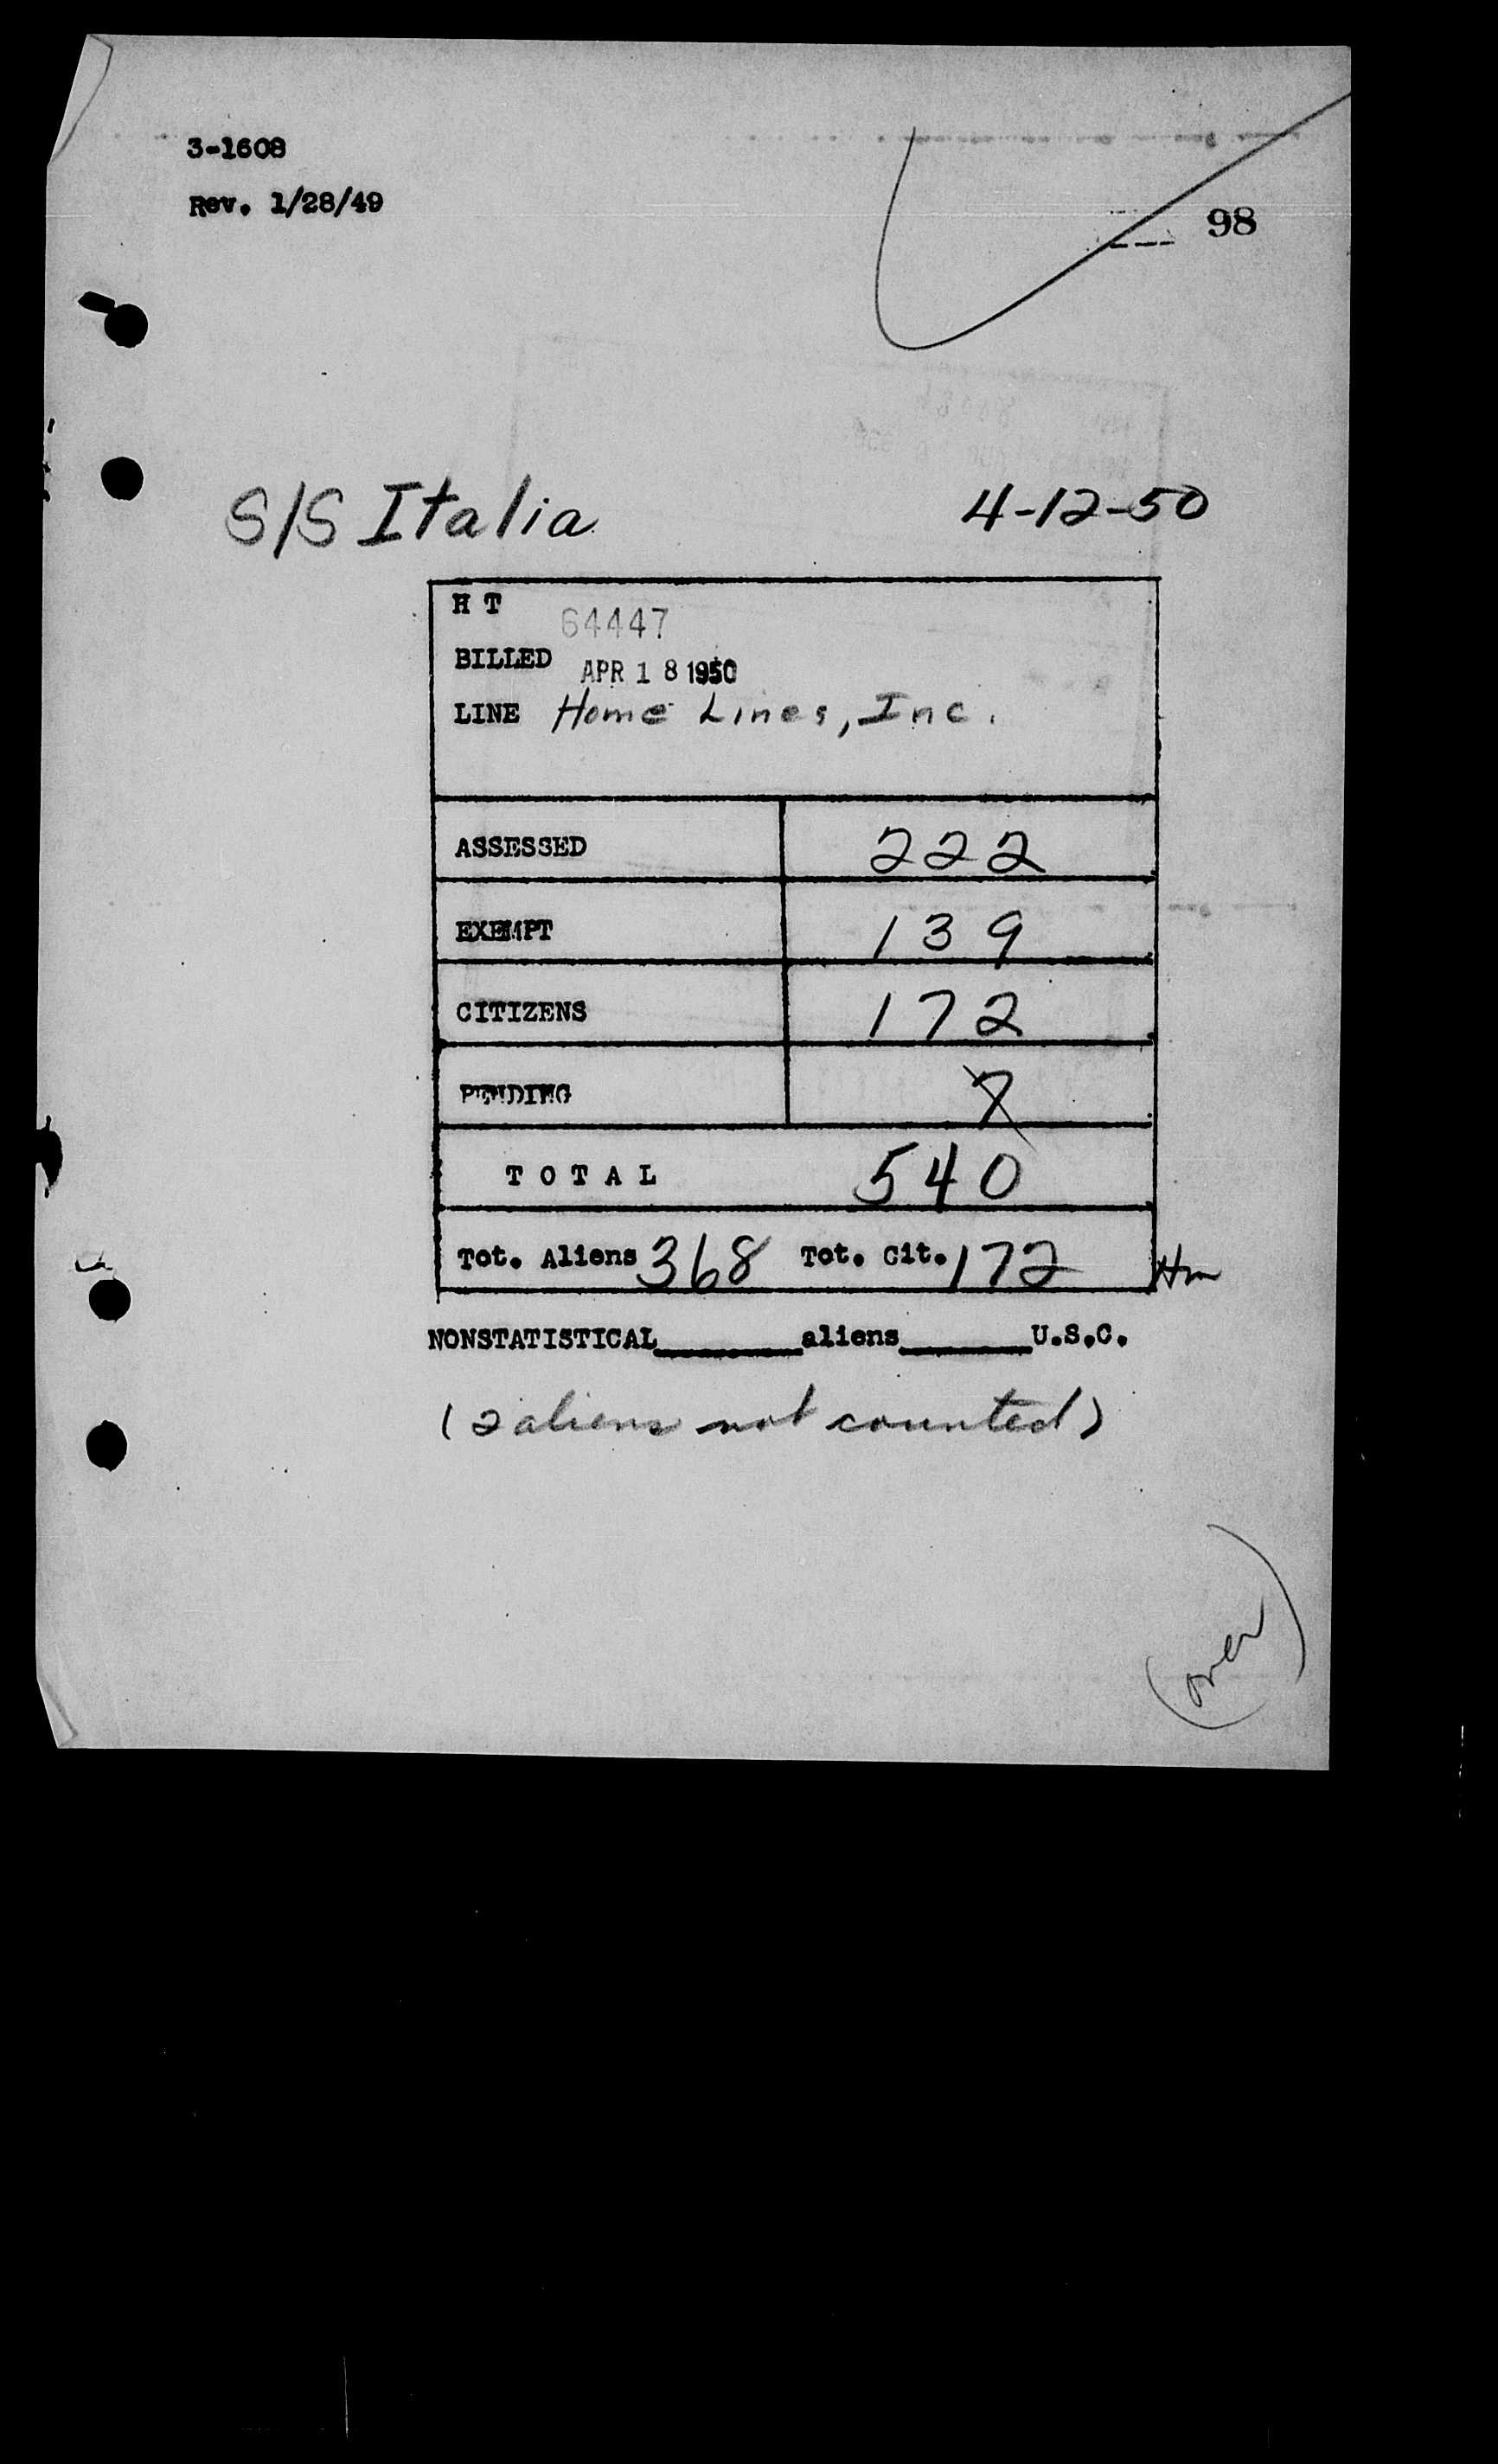 3-1608
Rev. 1/28/49
98
S/S Italia 4-12-50
H T 64447
BILLED APR 18 1950
LINE Home Lines, Inc.
ASSESSED 222
EXEMPT 139
CITIZENS 172
PENDING 7
TOTAL 540
Tot. Aliens 368 Tot. Cit. 172 Hm
NONSTATISTICAL aliens U.S.C.
(2 aliens not counted)
(over)